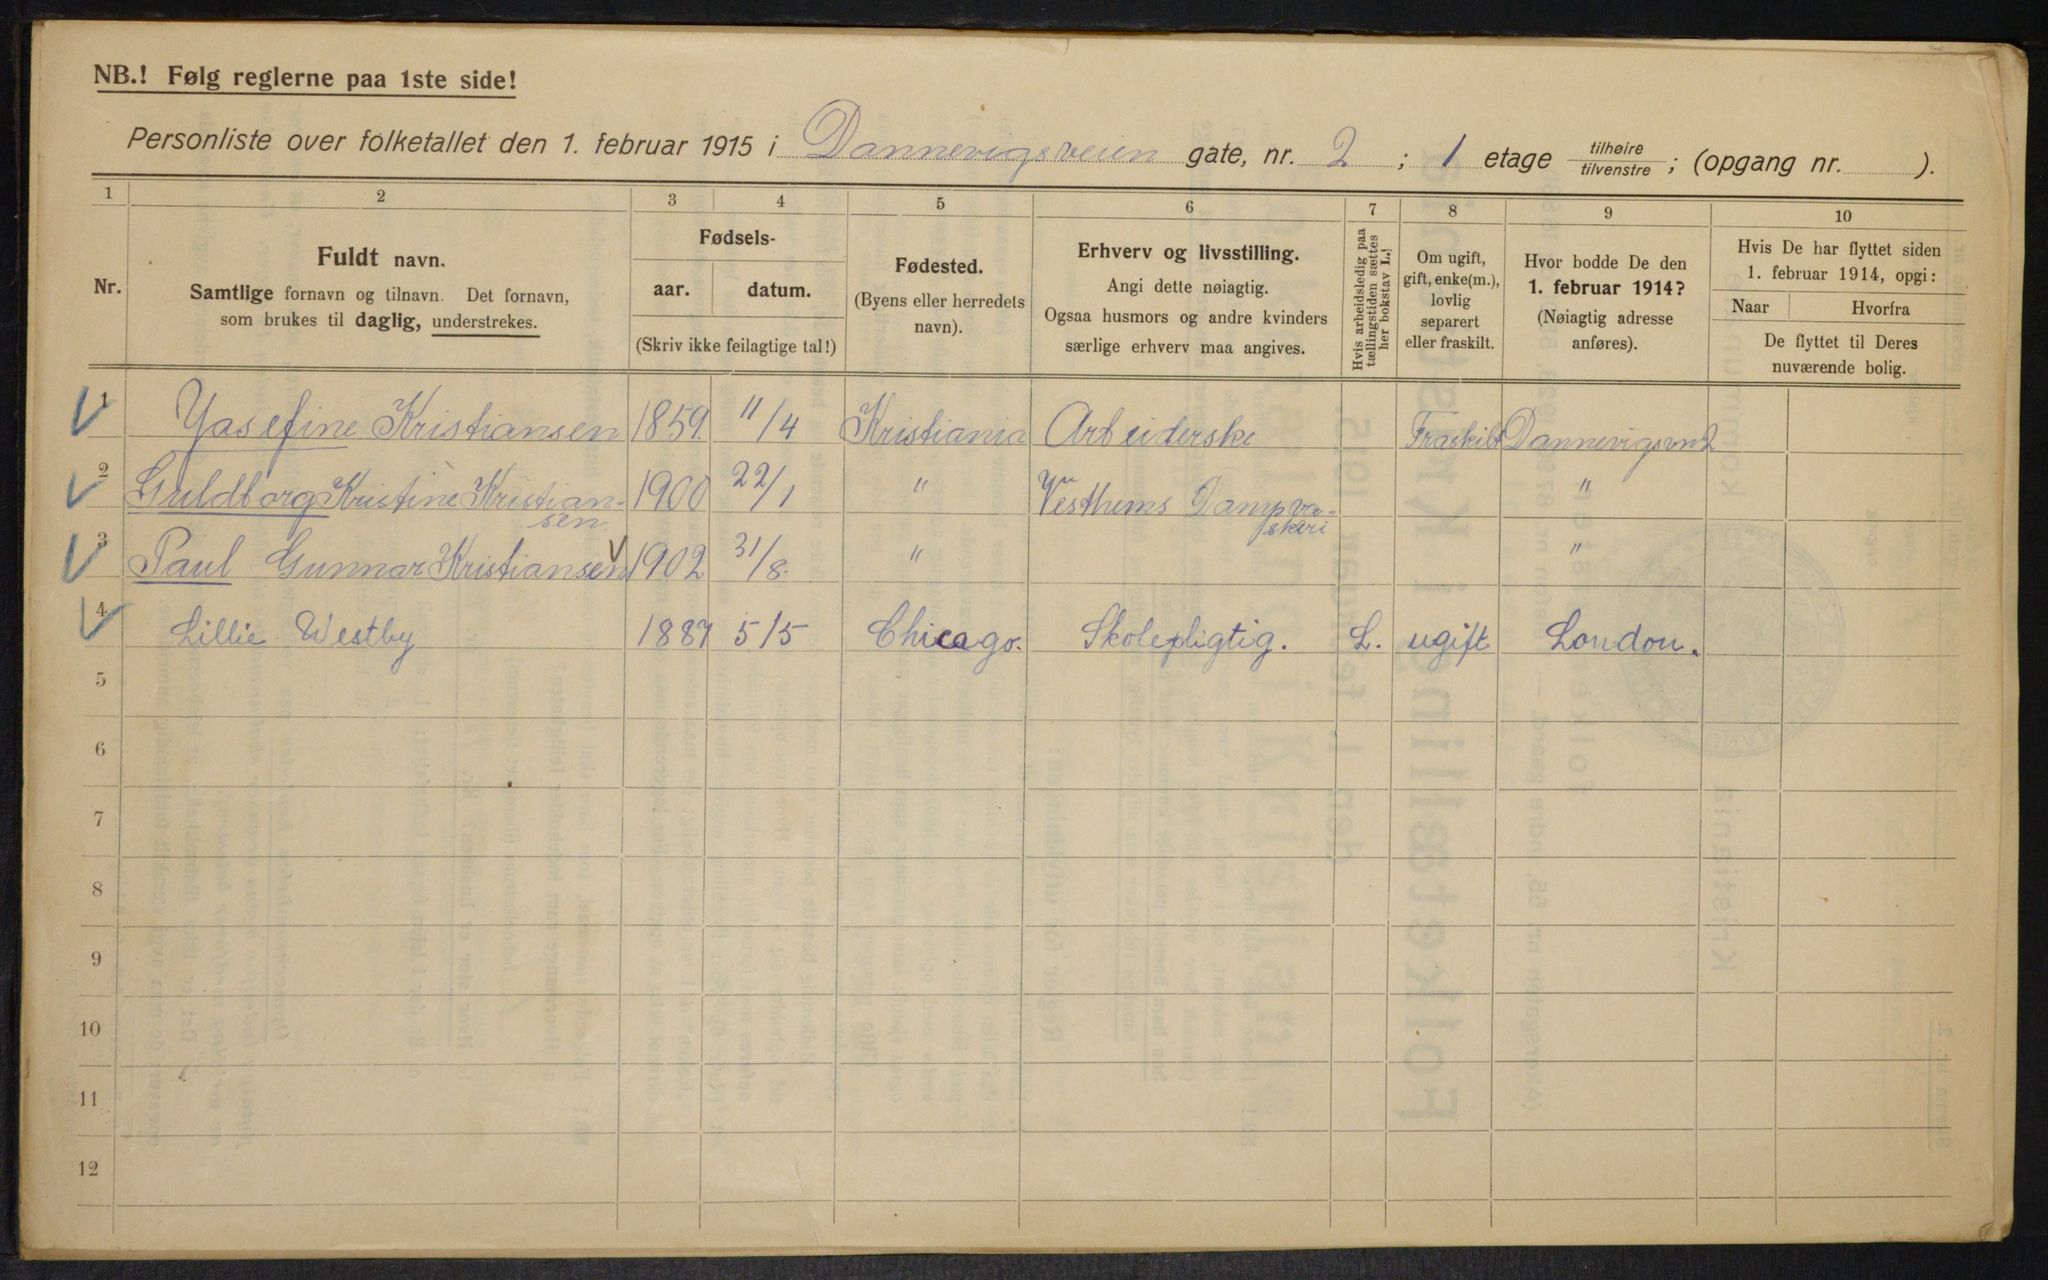 NB.! Følg reglerne paa 1ste side!
Personliste over folketallet den 1. februar 1915 i Dannevigsveien gate, nr. 2 ; 1 etage tilhøire / tilvenstre ; (opgang nr. ).
1 2 3 4 5 6 7 8 9 10
Nr.
Fuldt navn.
Samtlige fornavn og tilnavn. Det fornavn,
som brukes til daglig, understrekes.
Fødsels-
aar. datum.
(Skriv ikke feilagtige tal!)
Fødested.
(Byens eller herredets
navn).
Erhverv og livsstilling.
Angi dette nøiagtig.
Ogsaa husmors og andre kvinders
særlige erhverv maa angives.
Hvis arbeidsledig paa
tællingstiden sættes
her bokstav L.!
Om ugift,
gift, enke(m.),
lovlig
separert
eller fraskilt.
Hvor bodde De den
1. februar 1914?
(Nøiagtig adresse
anføres).
Hvis De har flyttet siden
1. februar 1914, opgi:
Naar Hvorfra
De flyttet til Deres
nuværende bolig.
1 Yasefine Kristiansen 1859. 11/4 Kristiania Arbeiderske Fraskilt Dannevigsvn 2
2 Guldborg Kristine Kristian- 1900 22/1 " Vesthems Dampva- "
sen skeri
3 Paul Gunnar Kristiansen 1902 31/8. " "
4 Lillie Westby 1887 5/5 Chicago. Skolepligtig. L. ugift London.
5
6
7
8
9
10
11
12